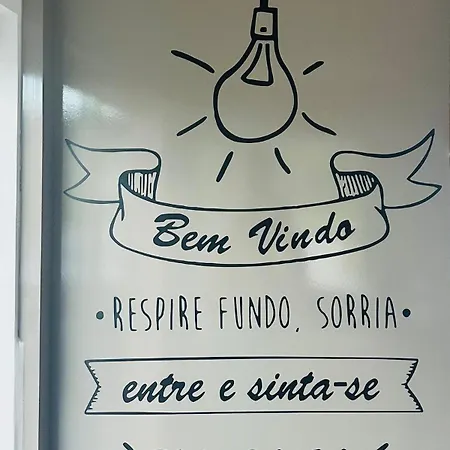 Bem Vindo
• RESPIRE FUNDO, SORRIA •
entre e sinta-se